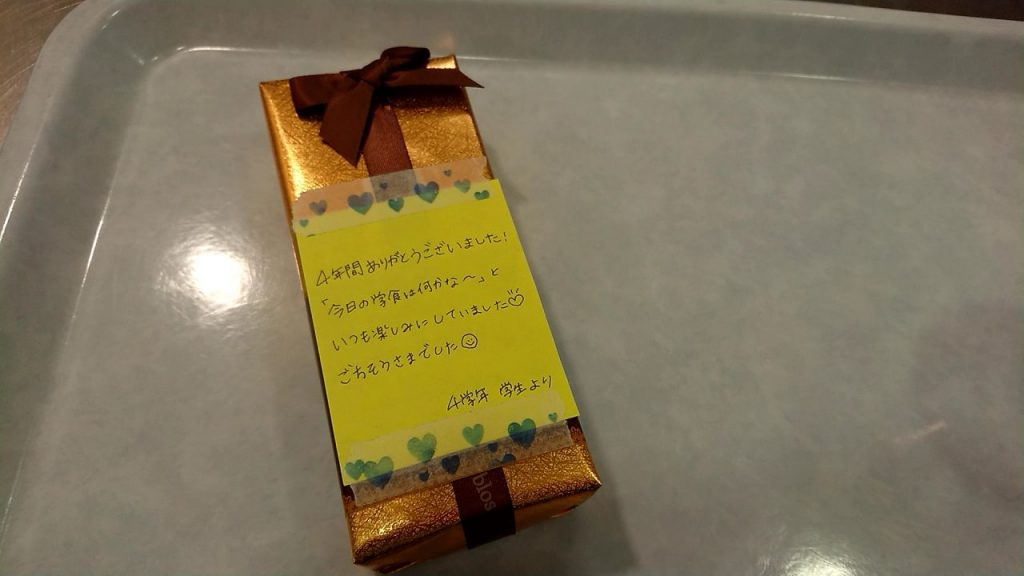 4年間ありがとうございました!
「今日の学食は何かな〜」と
いつも楽しみにしていました♡
ごちそうさまでした☺
4学年 学生より
blos